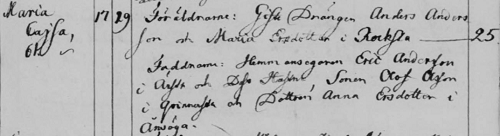 Maria 17 29 Föräldrarne: Gifte Drängen Anders Anders
Cajsa, son och Maria Ersdotter i Rocksta — 25
Faddrarne: Hemmansegaren Eric Anderson
i och Dess Hustru Sonen Olof Olson
i och Dottren Anna Ersdotter i